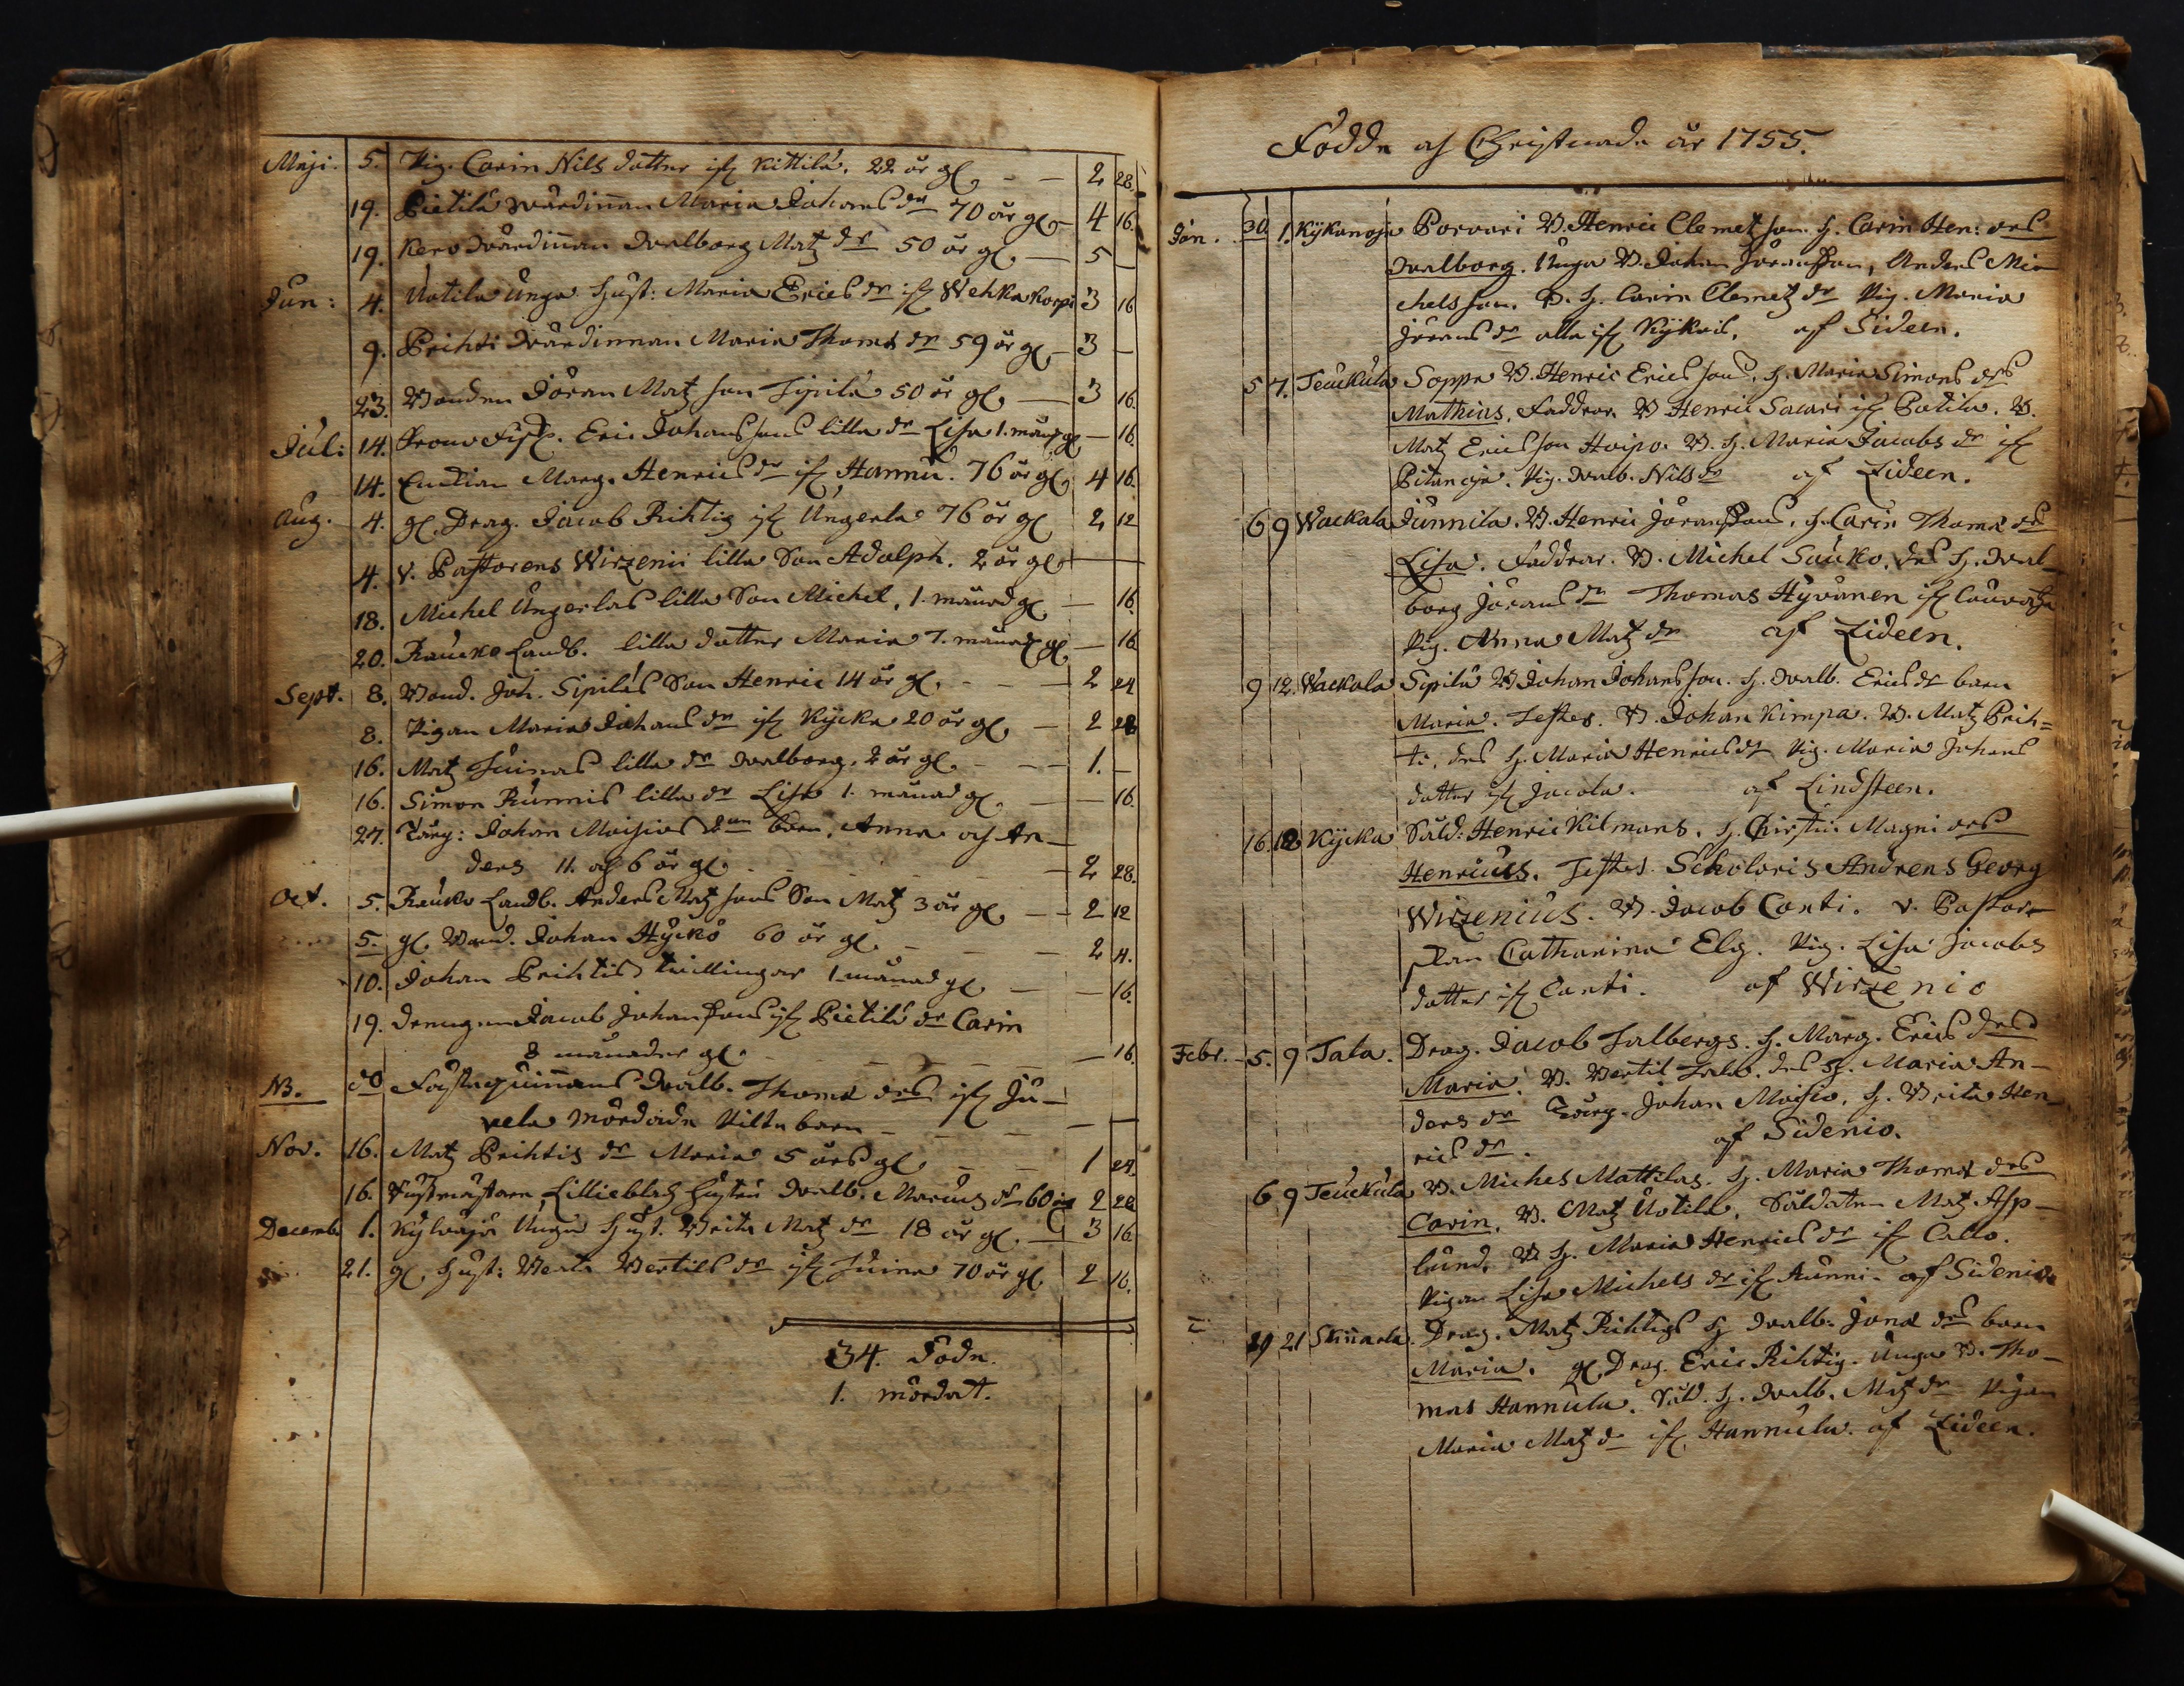 Maji. 5. Pig. Carin Nils dotter ifr. Kittilä. 22 år gl. 2 28.
19. Pietilä wärdinnan Maria Johans dr 70 år gl. 4 16.
19. Kero wärdinnan Walborg Matz dr 50 år gl. 5 —
Jun: 4. Uotila Unga Hust: Maria Erics dr ifr. Wehkakorpi 3 16
9. Prihti wärdinnan Maria Thomæ dr 59 år gl. 3 —
23. Bonden Jöran Matz son Sipilä 50 år gl. 3 16.
Jul: 14. Eric Johanssons lilla dr Lisa 1. mån. gl. — 16.
14. Enckian Marg. Henrics dr ifr. Hannu. 76 år gl. 4 16.
Aug. 4. gl. Drag. Jacob Rihtig ifr. Ungerla 76 år gl. 2 12
4. v. Pastorens Wirzenii lilla Son Adolph. 2 år gl.
18. Michel Ungerlas lilla Son Michel, 1. månad gl. — 16.
20. Raucko Landb. lilla dotter Maria 7. månad gl. — 16
Sept. 8. Bond. Joh. Sipiläs Son Henric 14 år gl. 2 24
8. Pigan Maria Johans dr ifr. Kycke 20 år gl. 2 28
16. Matz Tuimas lilla dr Walborg. 2 år gl. 1. —
16. Simon Runnis lilla dr Lisa 1. månad gl. — 16.
27. Torp: Johan Moisios barn, Anna och An-
ders 11. och 6 år gl. 2 28.
Oct. 5. Rauko Landb. Anders Matz sons Son Matz 3 år gl. 2 12
5. gl. Bond. Johan Hyckö 60 år gl. 2 4.
10. Johan Prihtis twillingar 1. månad gl. — 16.
19. drengen Jacob Johanssons ifr. Pietilä dr Carin
8 månader gl. — 16.
NB. do qwinnans Walb. Thomæ drs ifr. Ju-
vela mördade barn —
Nov. 16. Matz Prihtis dr Maria 5 års gl. 1 24.
16. Lillieblads hustru Walb. Marcus dr 60 år 2 28
Decemb. 1. Kylväjä Unga Hust. Brita Matz dr 18 år gl. 3 16.
21. gl. Hust: Berta Bertils dr ifr. Tuima 70 år gl. 2 16.
34. Döde.
1. mördat.
Födde och Christnade år 1755.
Jan. 30 1. Kykanoja Porvari B. Henric Clemetson. H. Carin Hen: drs
Walborg. Unga B. Johan Jöransson, Anders Mi-
chels son. B. H. Carin Clemetz dr Pig. Maria
Jörans dr alla ifr. Kykois. af Sideen.
5 7. Teuckula Soppa B. Henric Erics son, H. Maria Simons drs
Mathias. Faddrar. B Henric Sacari ifr. Potila. B.
Matz Ericsson Hoipo. B. H. Maria Jacobs dr ifr.
Pitanoja. Pig. Walb. Nils dr af Zideen.
6 9 Wackala Junnila. B. Henric Jöranssons, H. Carin Thomæ drs
Lisa. Faddrar. B. Michel Sauko, des H. Wal-
borg Jörans dr Thomas Hyvänen ifr.
Pig. Anna Matz dr af Zideen.
9 12. Wackala Sipilä B Johan Johansson. H. Walb. Erics dr barn
Maria. Testes. B. Johan Kimpa. B. Matz Prih-
ti, des H. Maria Henrics dr Pig. Maria Johans
dotter ifr. Jacola. af Lindsteen.
16. 18 Kycka Sold: Henric Kilmans. H. Christin Magni drs
Henricus. Testes. Scholaris Andreas Georg
Wirzenius. B. Jacob Conti. v. Pastor-
skan Catharina Elg. Pig. Lisa Jacobs
dotter ifr. Conti. af Wirzenio
Febr. 5. 9 Tala. Drag. Jacob Talbergs. H. Marg. Erics drs
Maria. B. Bertil Tala. des H. Maria An-
ders dr Torp. Johan Moisio. H. Brita Hen-
rics dr. af Sidenio.
6 9 Teuckula B. Michel Mattilas. H. Maria Thomæ drs
Carin. B. Matz Uotila. Soldaten Matz Asp-
lund. B H. Maria Henrics dr ifr. Callo.
Pigan Lisa Michels dr ifr. Runni. af Sidenio
19 21 Drag. Matz Rihtigs H Walb. Jonæ drs barn
Maria. gl. Drag. Eric Rihtig. Unga B. Tho-
mas Hannula. Sold. H. Walb. Matz dr Pigan
Maria Matz dr ifr. Hannula. af Zideen.